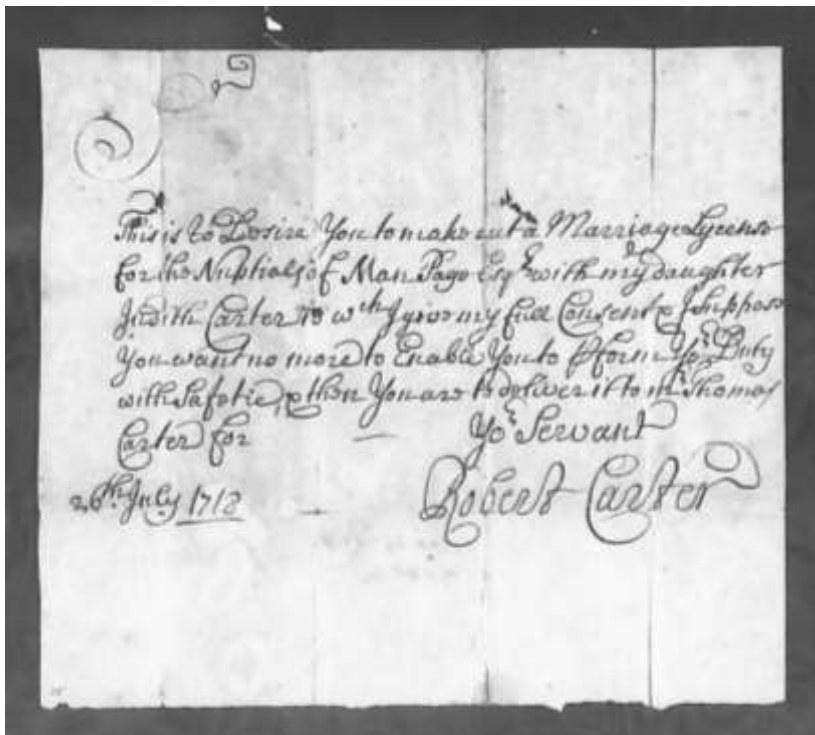 This is to Desire You to make out a Marriage Lycense
for the Nuptials of Man Page Esqr. with my daughter
Judith Carter to wch I give my full Consent & I suppose
You want no more to Enable You to Pform Yor Duty
with Safetie, & then You are to deliver it to mr. Thomas
Carter for
Yor Servant
26th. July 1718
Robert Carter